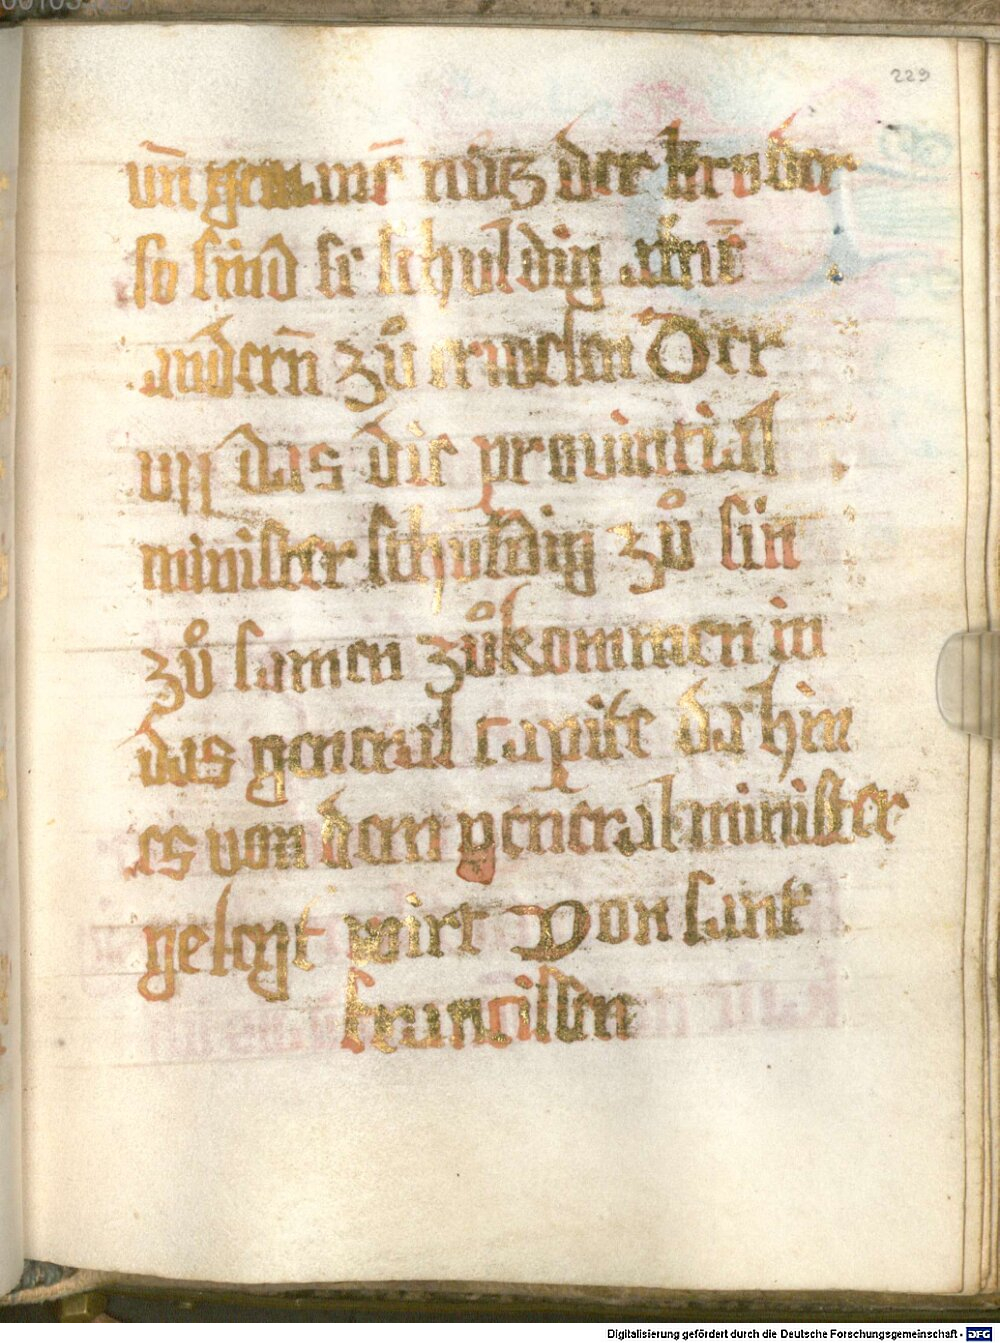 229
vn̄ gemainē nútz der brvder
so sind si schuldig ainē
andern̄ zů erwelen Der
vn̄ das die prouincial
minister schuldig zů sin
zů samen zůkommen in
das general capitel da hin
es von dem general minister
gelegt wirt Von sant
francissen
Digitalisierung gefördert durch die Deutsche Forschungsgemeinschaft - DFG